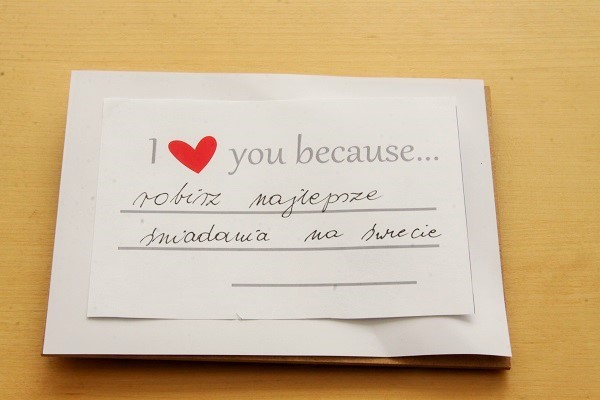 I ❤ you because...
robisz najlepsze
śniadania na świecie